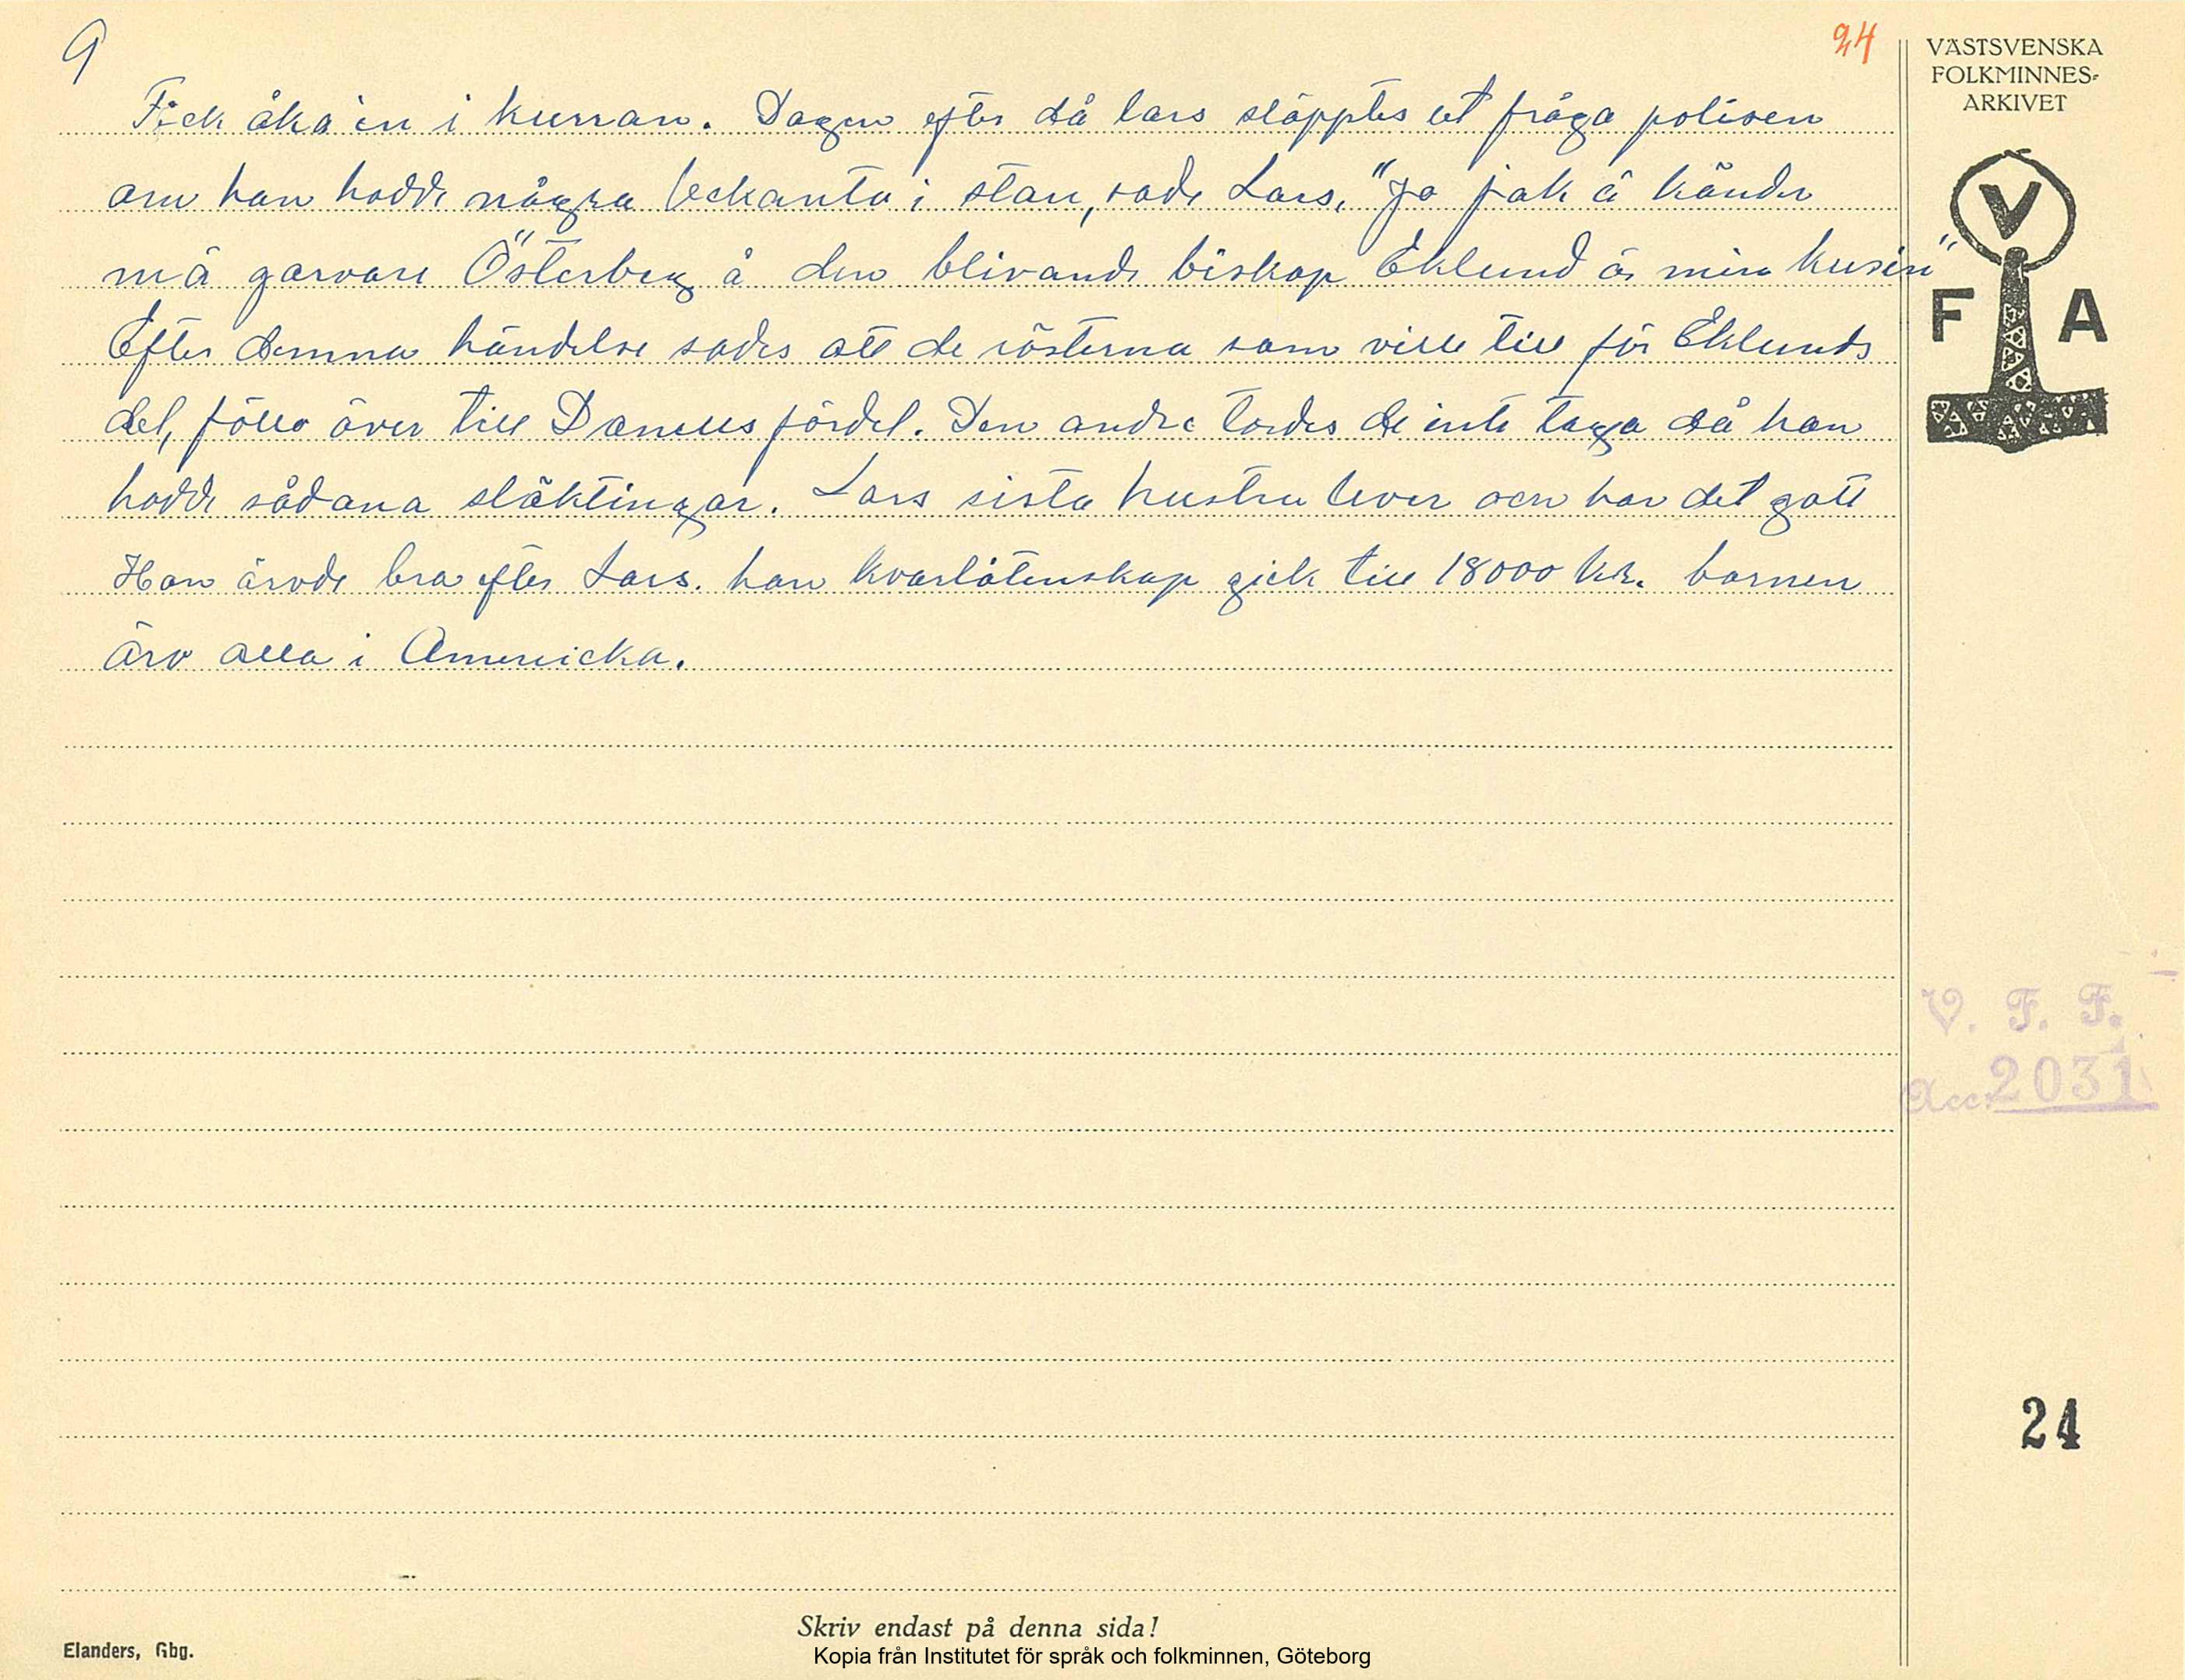 9
24
Fick åka in i kurran. Dagen efter då lars släpptes ut fråga polisen
om han hadde några beckanta i stan, sade Lars, "Jo jak ä känder
mä garvare Österberg å den blivande biskop Eklund är min kusin"
Efter denna händelse sades att de rösterna som ville till för Eklunds
del, föllo över till Danells fördel. Den andre tordes de inte taga då han
hadde sådana släktingar. Lars sista hustru lever ocn har det gott
Hon ärvde bra efter Lars. han kvarlåtenskap gick till 18000 kr. barnen
äro alla i Amerricka.
VÄSTSVENSKA
FOLKMINNES-
ARKIVET
V
F A
V. F. F.
Acc. 2031
24
Skriv endast på denna sida!
Elanders, Gbg.
Kopia från Institutet för språk och folkminnen, Göteborg